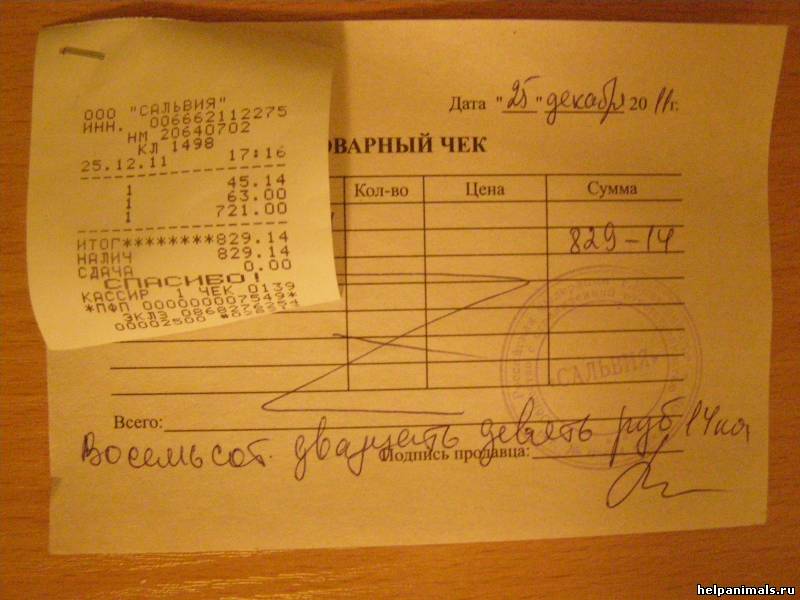 ООО "САЛЬВИЯ"
ИНН. 006662112275
НМ 20640702
КЛ 1498
25.12.11 17:16
1 45.14
1 63.00
1 721.00
ИТОГ********829.14
НАЛИЧ 829.14
СДАЧА 0.00
СПАСИБО!
КАССИР 1 ЧЕК 0139
*ПФП 000000007549*
ЭКЛЗ
00002500
Дата "25" декабря 2011г.
ОВАРНЫЙ ЧЕК
Кол-во Цена Сумма
829-14
«САЛЬВИЯ»
Всего:
Восемьсот двадцать девять руб 14 коп
Подпись продавца:
helpanimals.ru